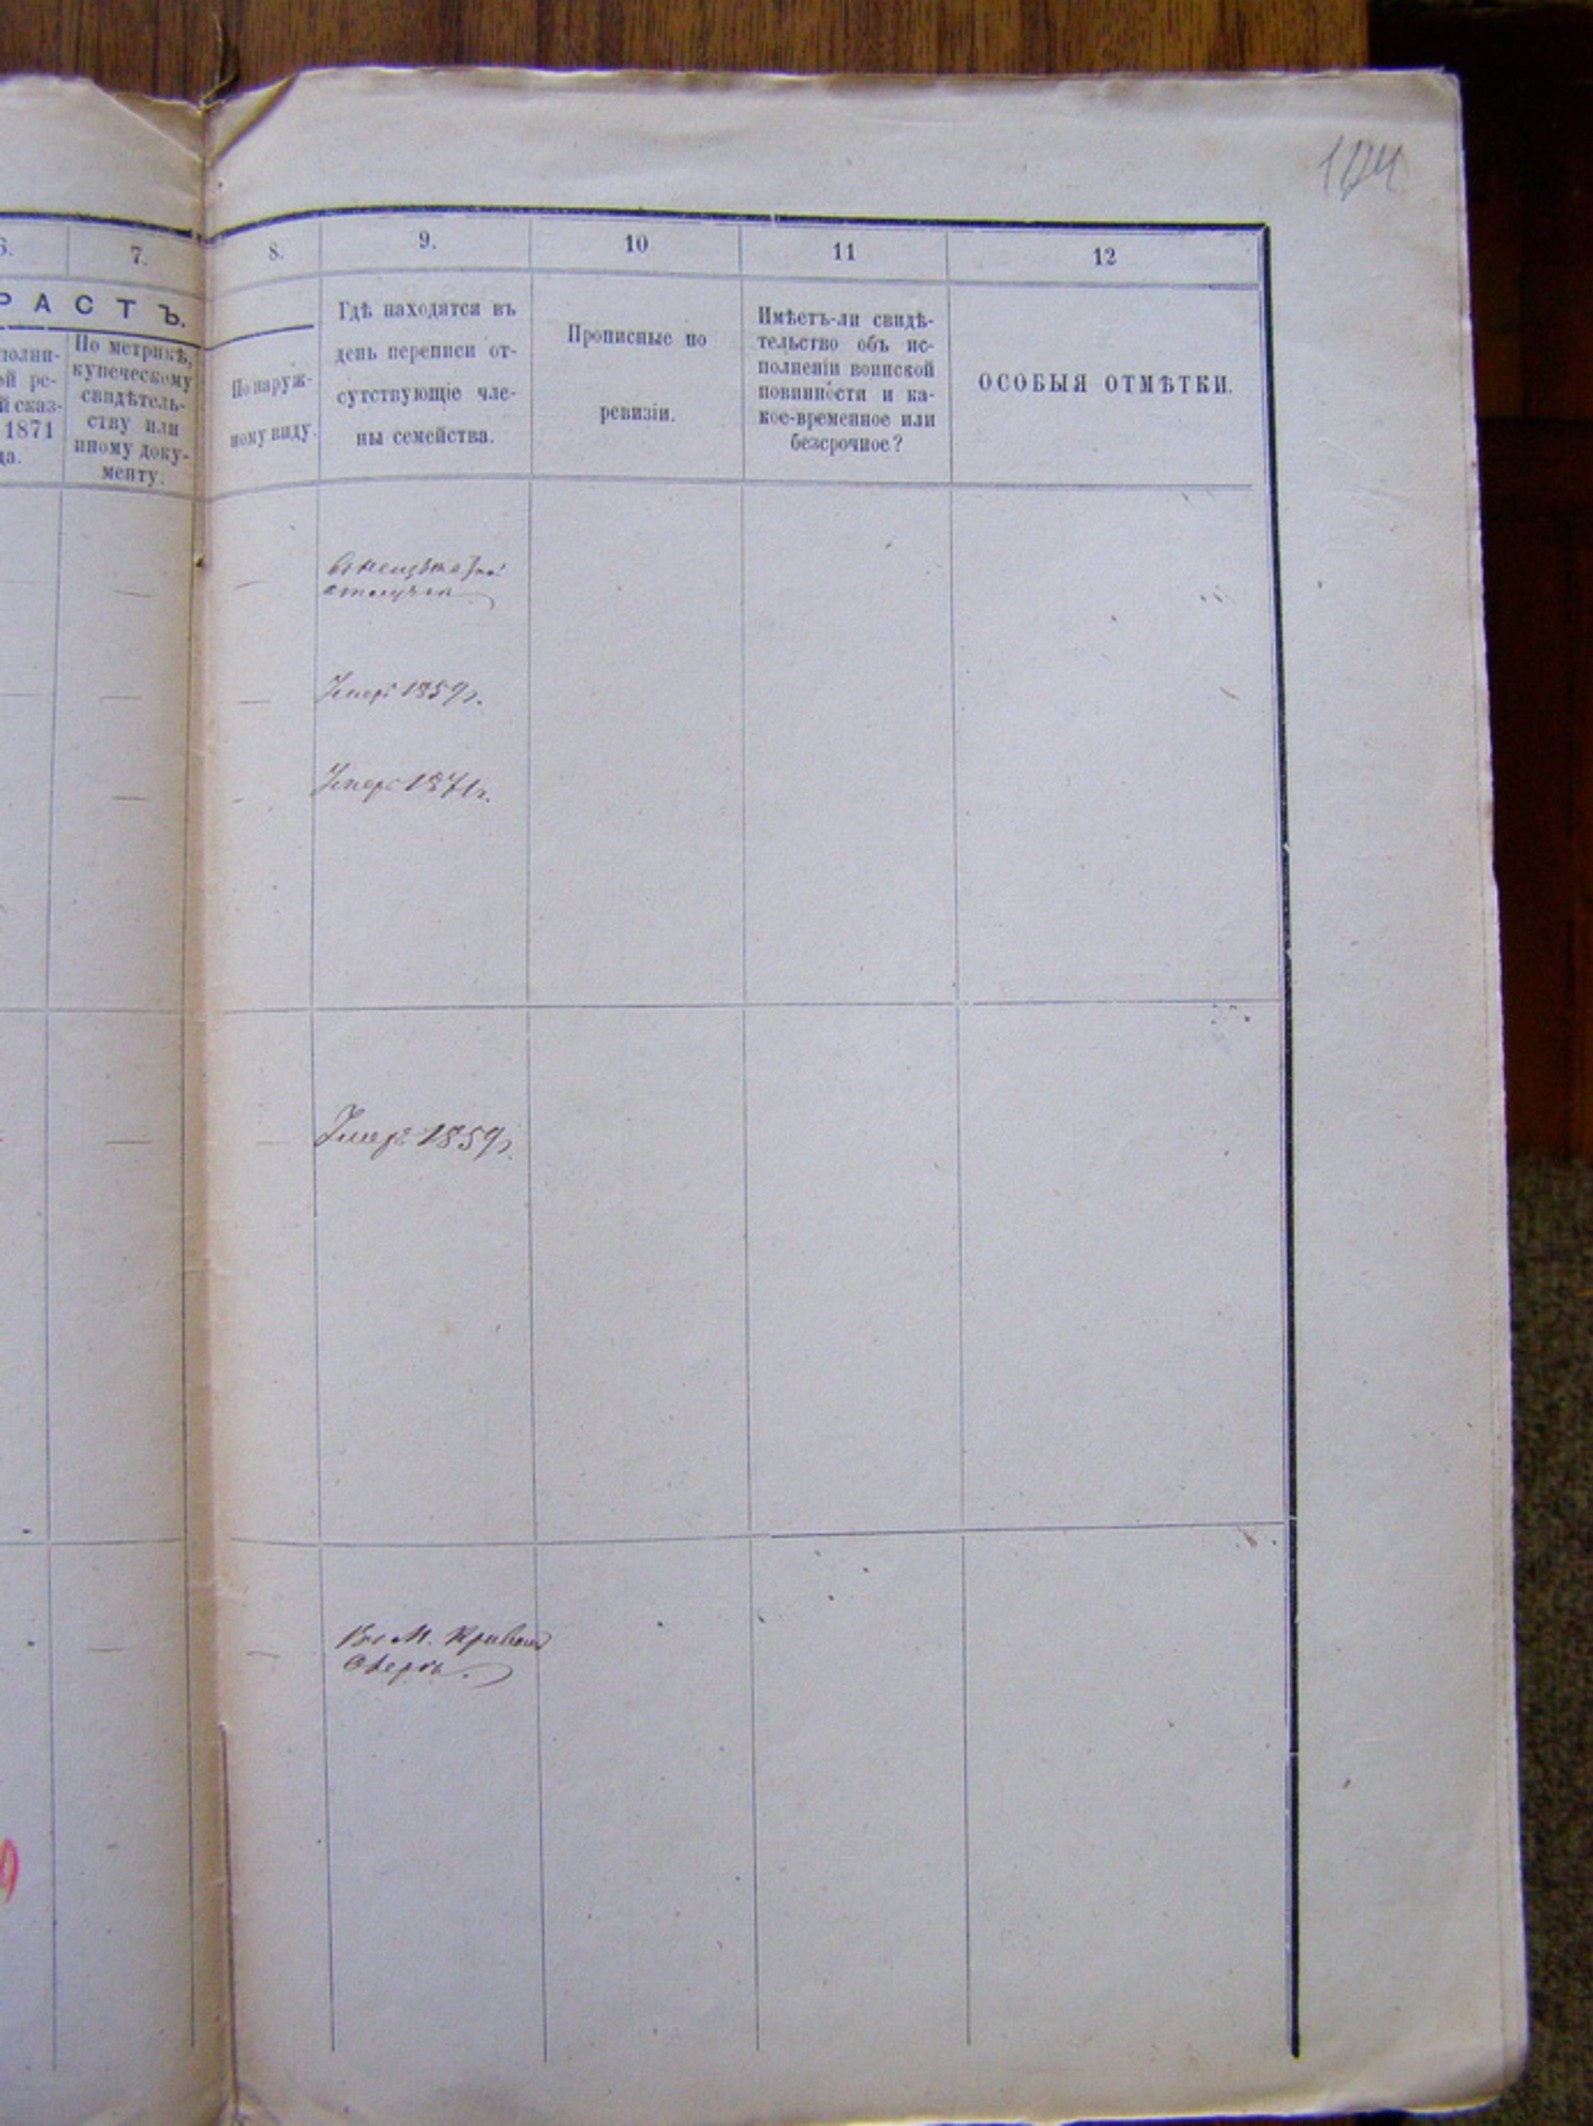 6.
7.
8.
9.
10
11
12
РАСТЪ.
полни-
ой ре-
й сказ-
1871
да.
По метрикѣ,
купеческому
свидѣтель-
ству или
иному доку-
менту.
По наруж-
ному виду.
Гдѣ находятся въ
день переписи от-
сутствующіе чле-
ны семейства.
Прописные по
ревизіи.
Имѣетъ-ли свидѣ-
тельство объ ис-
полненіи воинской
повинности и ка-
кое-временное или
безсрочное?
ОСОБЫЯ ОТМѢТКИ.
отлучкѣ
Умеръ 1859г.
Умеръ 1871г.
Умеръ 1859г.
Въ М. Кривом
Озеръ.